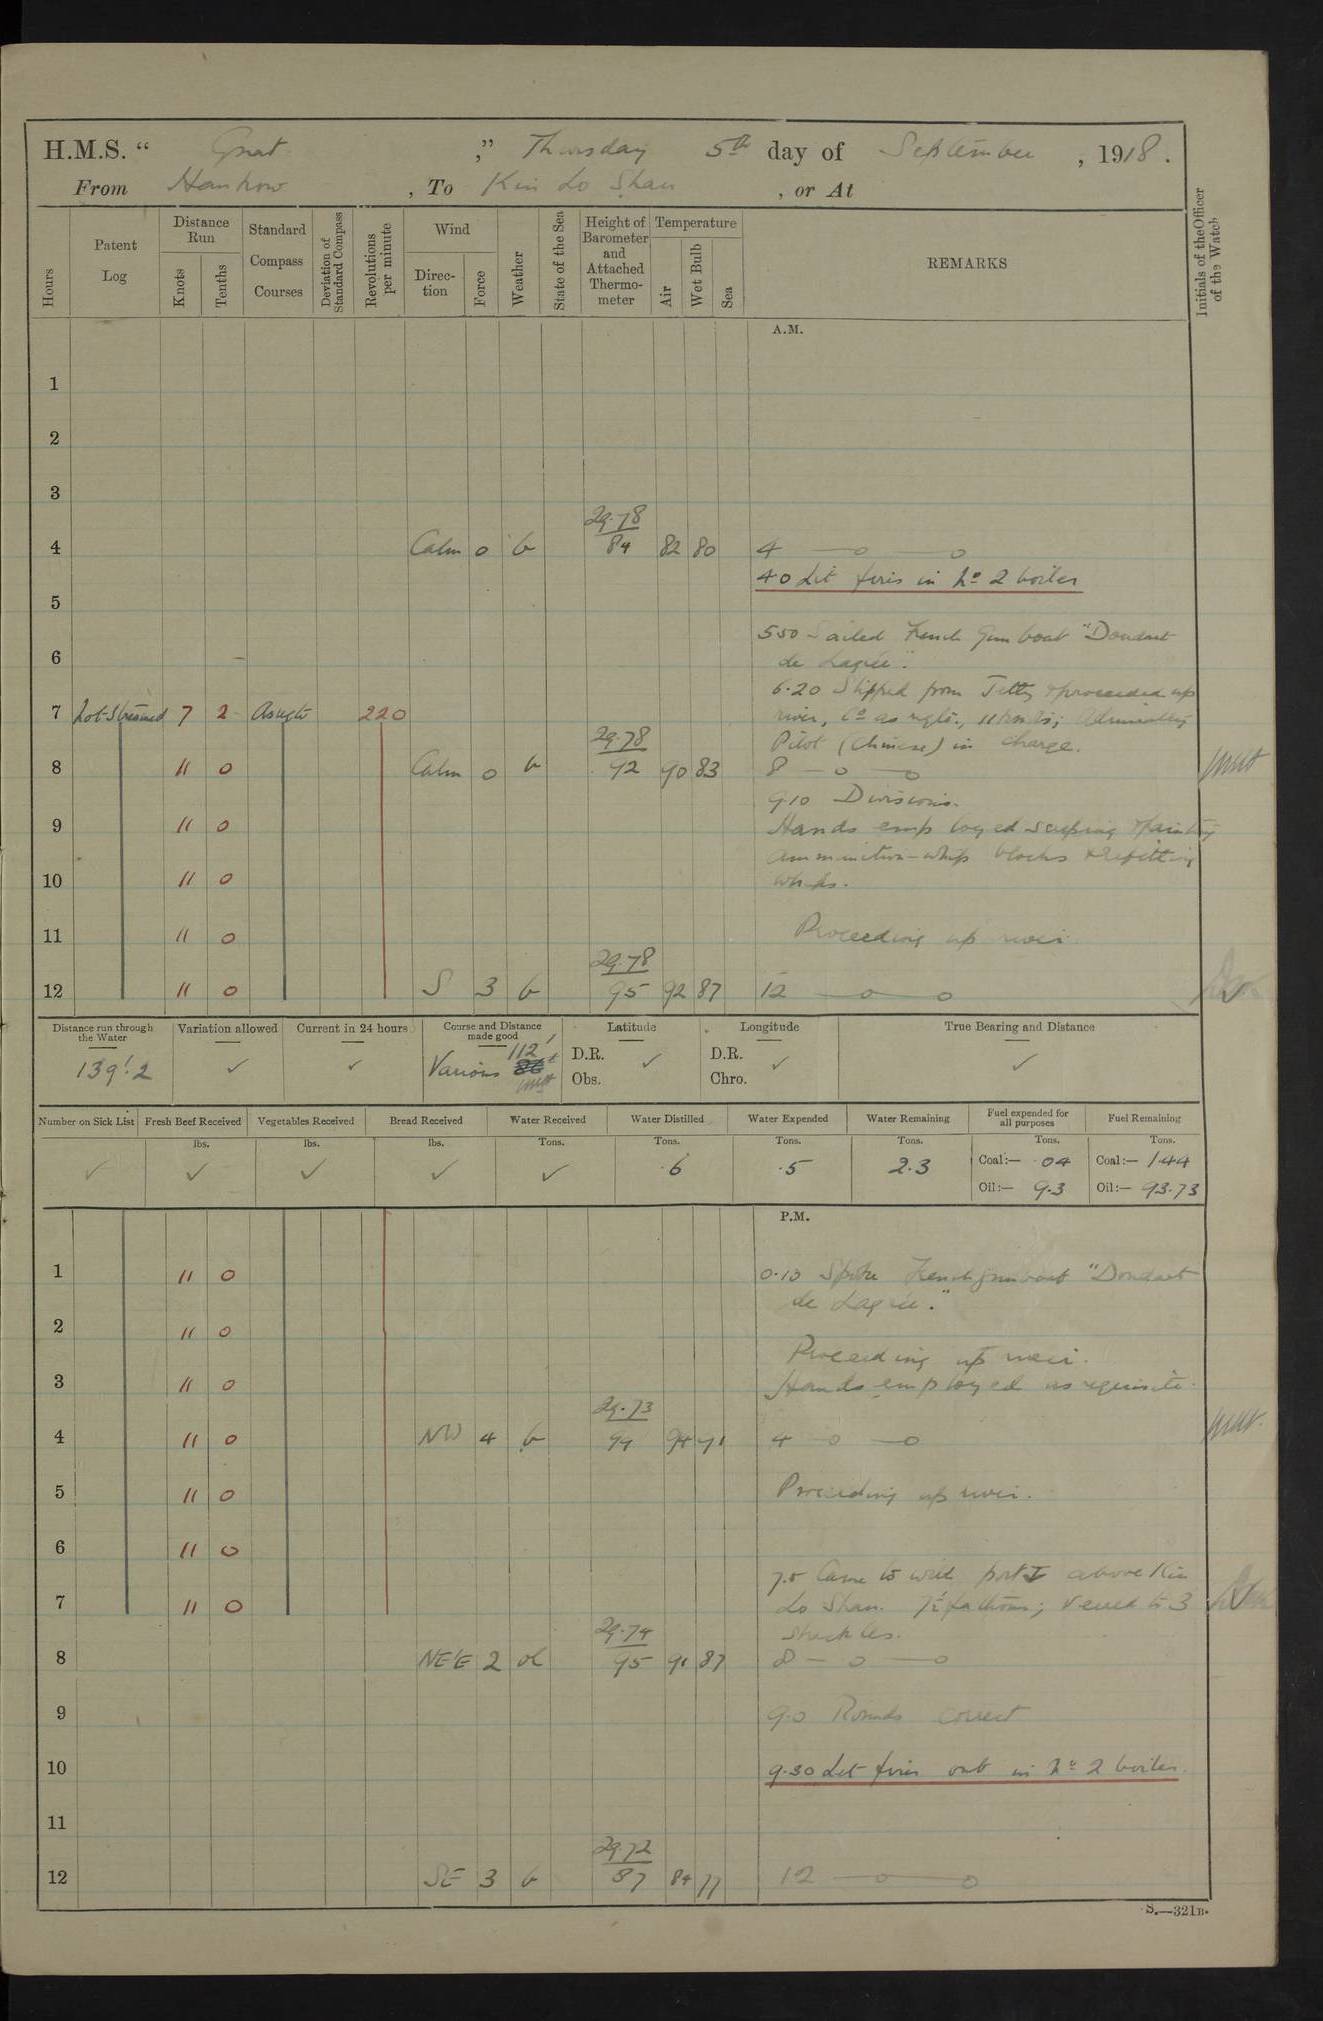 H.M.S. " Gnat ," Thursday 5th day of September , 1918 .
From Hankow , To Kin Lo Shan , or At
Hours
Patent Log
Distance Run
Knots
Tenths
Standard Compass Courses
Deviation of Standard Compass
Revolutions per minute
Wind
Direction
Force
Weather
State of the Sea
Height of Barometer and Attached Thermometer
Temperature
Air
Wet Bulb
Sea
REMARKS
Initials of the Officer of the Watch
A.M.
1
2
3
29.78
4 Calm 0 b 84 82 80 4 — o — o
40 Lit fires in No 2 boiler
5
550 Sailed French Gun boat "Doudart
6 de Lagrée".
6.20 Slipped from Jetty & proceeded up
7 Not Streamed 7 2 Asregte 220 river, Co as regte., 11 knots; Admiralty
29.78 Pilot (Chinese) in charge.
8 11 0 Calm 0 b 92 90 83 8 — o — o
9.10 Divisions.
9 11 0 Hands employed scraping & painting
ammunition-whip blocks & refitting
10 11 0 whips.
11 11 0 Proceeding up river
29.78
12 11 0 S 3 b 95 92 87 12 — o — o
Distance run through the Water
Variation allowed
Current in 24 hours
Course and Distance made good
Latitude
Longitude
True Bearing and Distance
139'.2 ✓ ✓ Various 112' D.R. ✓ D.R. ✓ ✓
Obs. Chro.
Number on Sick List
Fresh Beef Received
Vegetables Received
Bread Received
Water Received
Water Distilled
Water Expended
Water Remaining
Fuel expended for all purposes
Fuel Remaining
lbs. lbs. lbs. Tons. Tons. Tons. Tons. Tons. Tons.
✓ ✓ ✓ ✓ ✓ .6 .5 2.3 Coal:— .04 Coal:— 1.44
Oil:— 9.3 Oil:— 93.73
P.M.
1 11 0 0.13 Spoke French gunboat "Doudart
de Lagrée."
2 11 0
Proceeding up river.
3 11 0 Hands employed as requisite.
29.73
4 11 0 NW 4 b 99 94 91 4 — o — o
5 11 0 Proceeding up river.
6 11 0
7.5 Came to with port above Kin
7 11 0 Lo Shan. 7½ fathoms; Veered to 3
29.74 shackles.
8 NE'E 2 ol 95 91 87 8 — o — o
9 9.0 Rounds correct
10 9.30 Let fires out in No 2 boiler.
11
29.72
12 SE 3 b 87 84 77 12 — o — o
S.—321B.